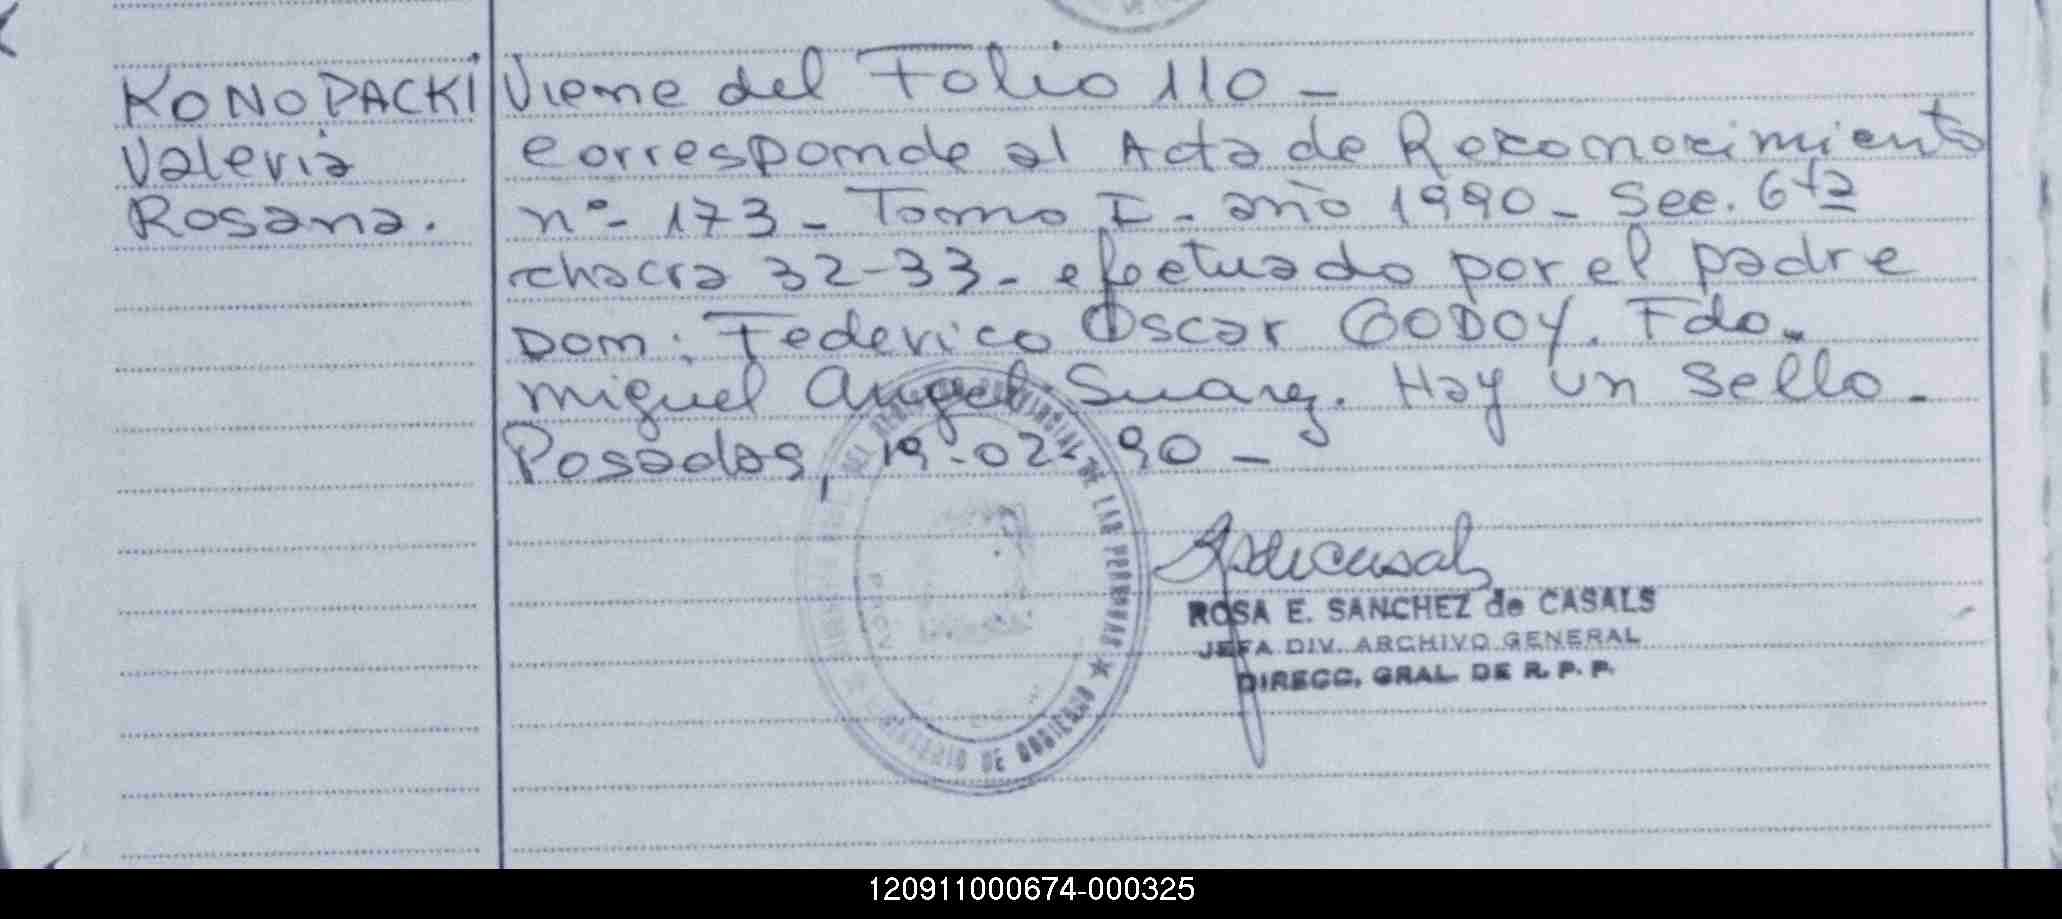 KONOPACKI
Valeria
Rosana.
Viene del Folio 110 -
corresponde al Acta de Reconocimiento
nº- 173 - Tomo I - año 1990 - Sec. 6ta
chacra 32-33 - efectuado por el padre
Don: Federico Oscar GODOY. Fdo.
Miguel Angel Suarez. Hay un sello -
Posadas, 19-02-90 -
PROVINCIAL DE LAS PERSONAS ★
DE GOBIERNO
ROSA E. SANCHEZ de CASALS
JEFA DIV. ARCHIVO GENERAL
DIRECC. GRAL. DE R. P. P.
120911000674-000325